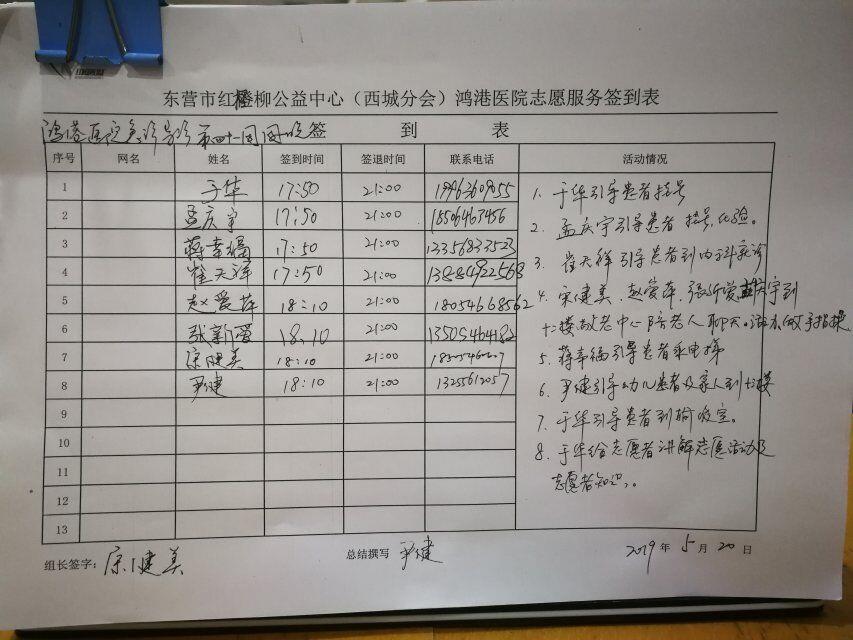 东营市红柳公益中心（西城分会）鸿港医院志愿服务签到表
鸿港医院急诊导诊 第四十一周 周一晚 签 到 表
序号 网名 姓名 签到时间 签退时间 联系电话 活动情况
1 于华 17:50 21:00
2 孟庆宇 17:50 21:00 18506463456
3 蒋幸福 17:50 21:00 13356833523
4 崔天祥 17:50 21:00 13884922568
5 赵爱萍 18:10 21:00 18054668562
6 张新爱 18:10 21:00 13505464182
7 宋健美 18:10 21:00
8 尹健 18:10 21:00 13255612057
9
10
11
12
13
1. 于华引导患者挂号
2. 孟庆宇引导患者挂号、化验。
3. 崔天祥引导患者到内科就诊
4. 宋健美、赵爱萍、张新爱、孟庆宇到
十二楼敬老中心陪老人聊天。手指操
5. 蒋幸福引导患者乘电梯
6. 尹健引导幼儿患者及家人到十楼
7. 于华引导患者到输液室。
8. 于华给志愿者讲解志愿活动及
志愿者知识。
组长签字: 宋健美 总结撰写 尹健 2019 年 5 月 20 日